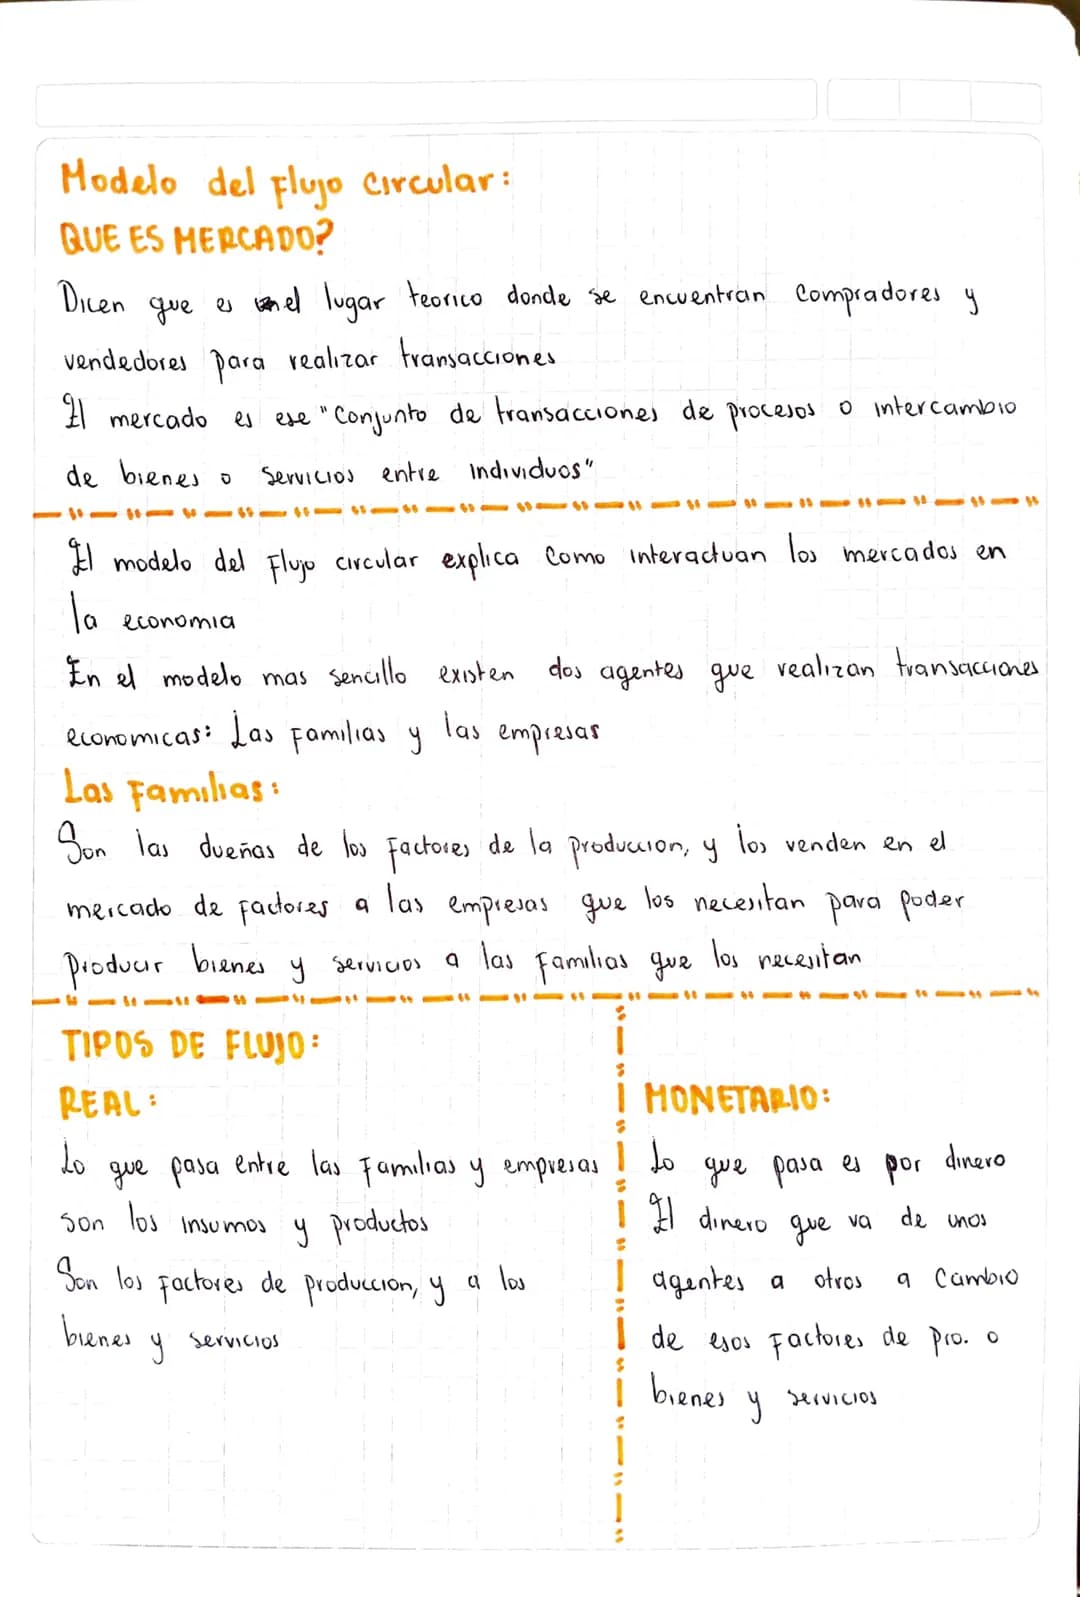 Modelo del Flujo Circular:
QUE ES MERCADO?
Dicen que es el lugar teorico donde se encuentran compradores y
vendedores para realizar transacciones
El mercado es ese "Conjunto de transacciones de procesos o intercambio
de bienes o servicios entre individuos"
El modelo del Flujo circular explica como interactuan los mercados en
la economia
En el modelo mas sencillo existen dos agentes que realizan transacciones
economicas: Las Familias y las empresas
Las Familias:
Son las dueñas de los Factores de la produccion, y los venden en el
mercado de Factores a las empresas que los necesitan para poder
producir bienes y servicios a las familias que los necesitan
TIPOS DE FLUJO:
REAL:
Lo que pasa entre las Familias y empresas
son los insumos y productos
Son los Factores de produccion, y a los
bienes y servicios
MONETARIO:
Lo que pasa es por dinero
El dinero que va de unos
agentes a otros a cambio
de esos Factores de pro. o
bienes y servicios